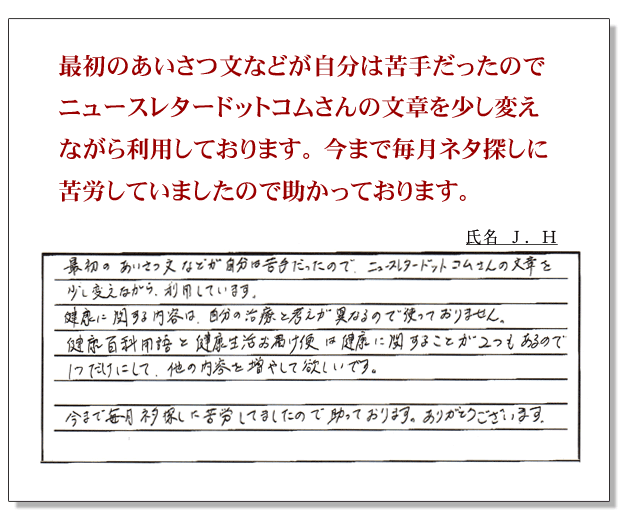 最初のあいさつ文などが自分は苦手だったので
ニュースレタードットコムさんの文章を少し変え
ながら利用しております。今まで毎月ネタ探しに
苦労していましたので助かっております。
氏名 J．H
最初のあいさつ文などが自分は苦手だったので、ニュースレタードットコムさんの文章を
少し変えながら、利用しています。
健康に関する内容は、自分の治療と考えが異なるので使っておりません。
健康百科用語と健康生活お届け便は健康に関することが2つもあるので
1つだけにして、他の内容を増やして欲しいです。
今まで毎月ネタ探しに苦労してましたので助っております。ありがとうございます.